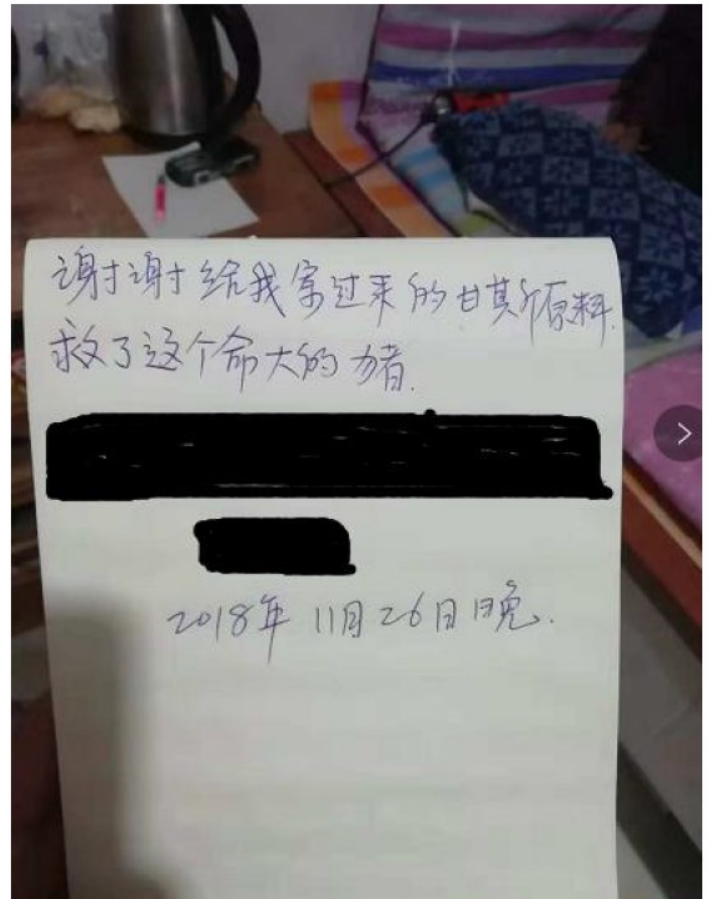 谢谢给我拿过来的甘其原料.
救了这个命大的猪.
2018年11月26日晚.